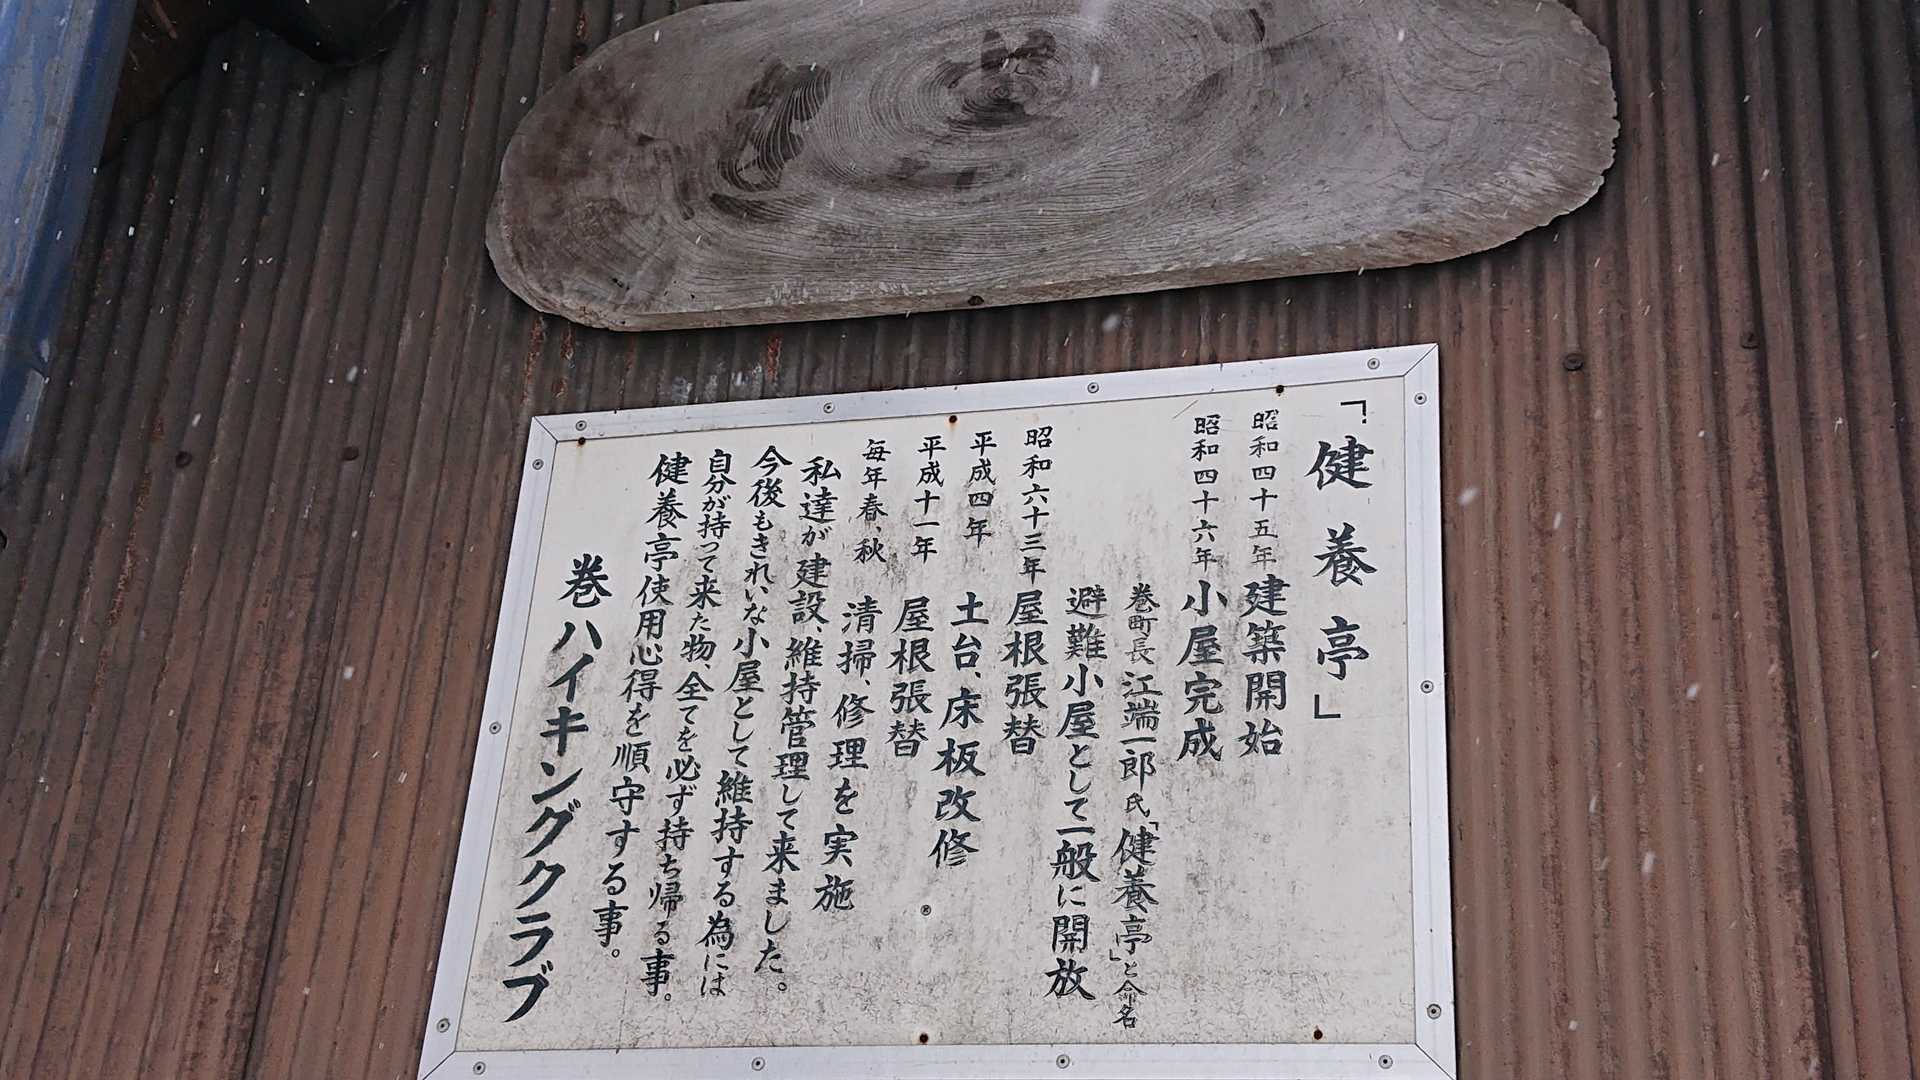 「健養亭」
昭和四十五年 建築開始
昭和四十六年 小屋完成
巻町長 江端一郎氏「健養亭」と命名
避難小屋として一般に開放
昭和六十三年 屋根張替
平成四年 土台、床板改修
平成十一年 屋根張替
毎年春、秋 清掃、修理を実施
私達が建設、維持管理して来ました。
今後もきれいな小屋として維持する為には
自分が持って来た物、全てを必ず持ち帰る事。
健養亭使用心得を順守する事。
巻ハイキングクラブ